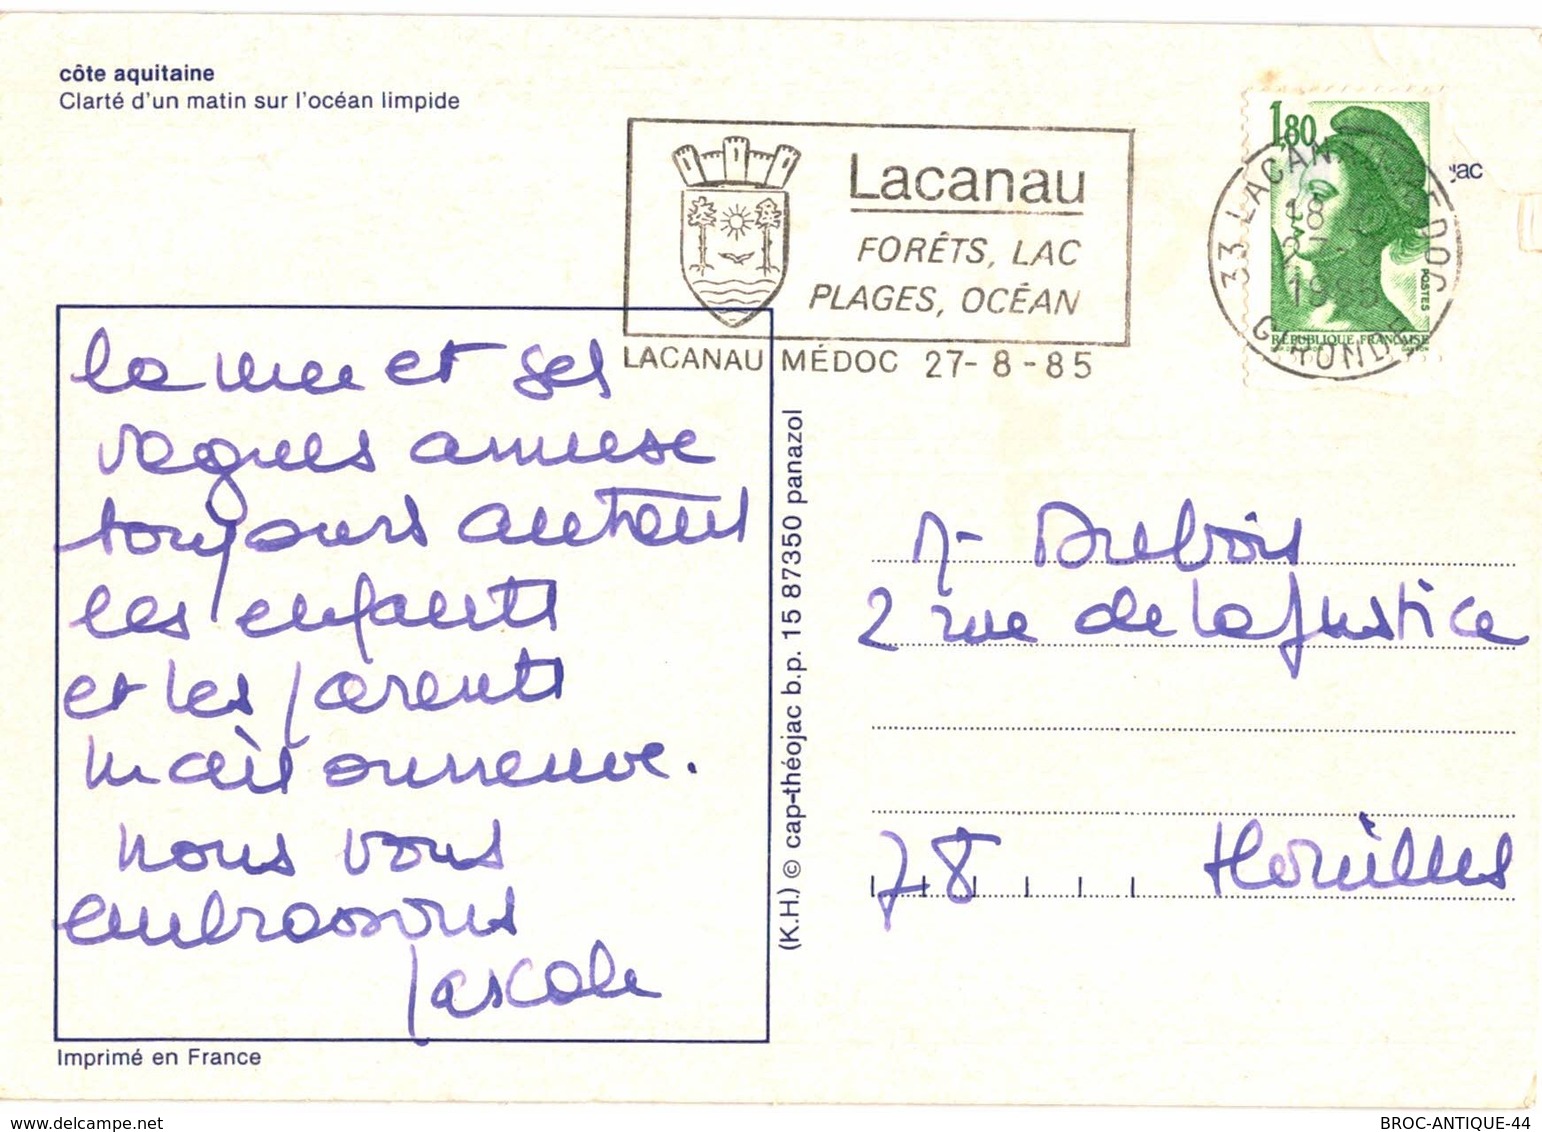 côte aquitaine
Clarté d'un matin sur l'océan limpide
Lacanau
FORÊTS, LAC
PLAGES, OCÉAN
LACANAU MÉDOC 27-8-85
1,80
POSTES
RÉPUBLIQUE FRANÇAISE
33 LACANAU MEDOC
18 H
27-8
1985
GIRONDE
jac
la mer et ses
vagues amuse
toujours autant
les enfants
et les parents
mais
nous vous
embrassons
Pascale
Imprimé en France
(K.H.) © cap-théojac b.p. 15 87350 panazol
Dubois
2 rue de la Justice
78 Houilles
BROC-ANTIQUE-44